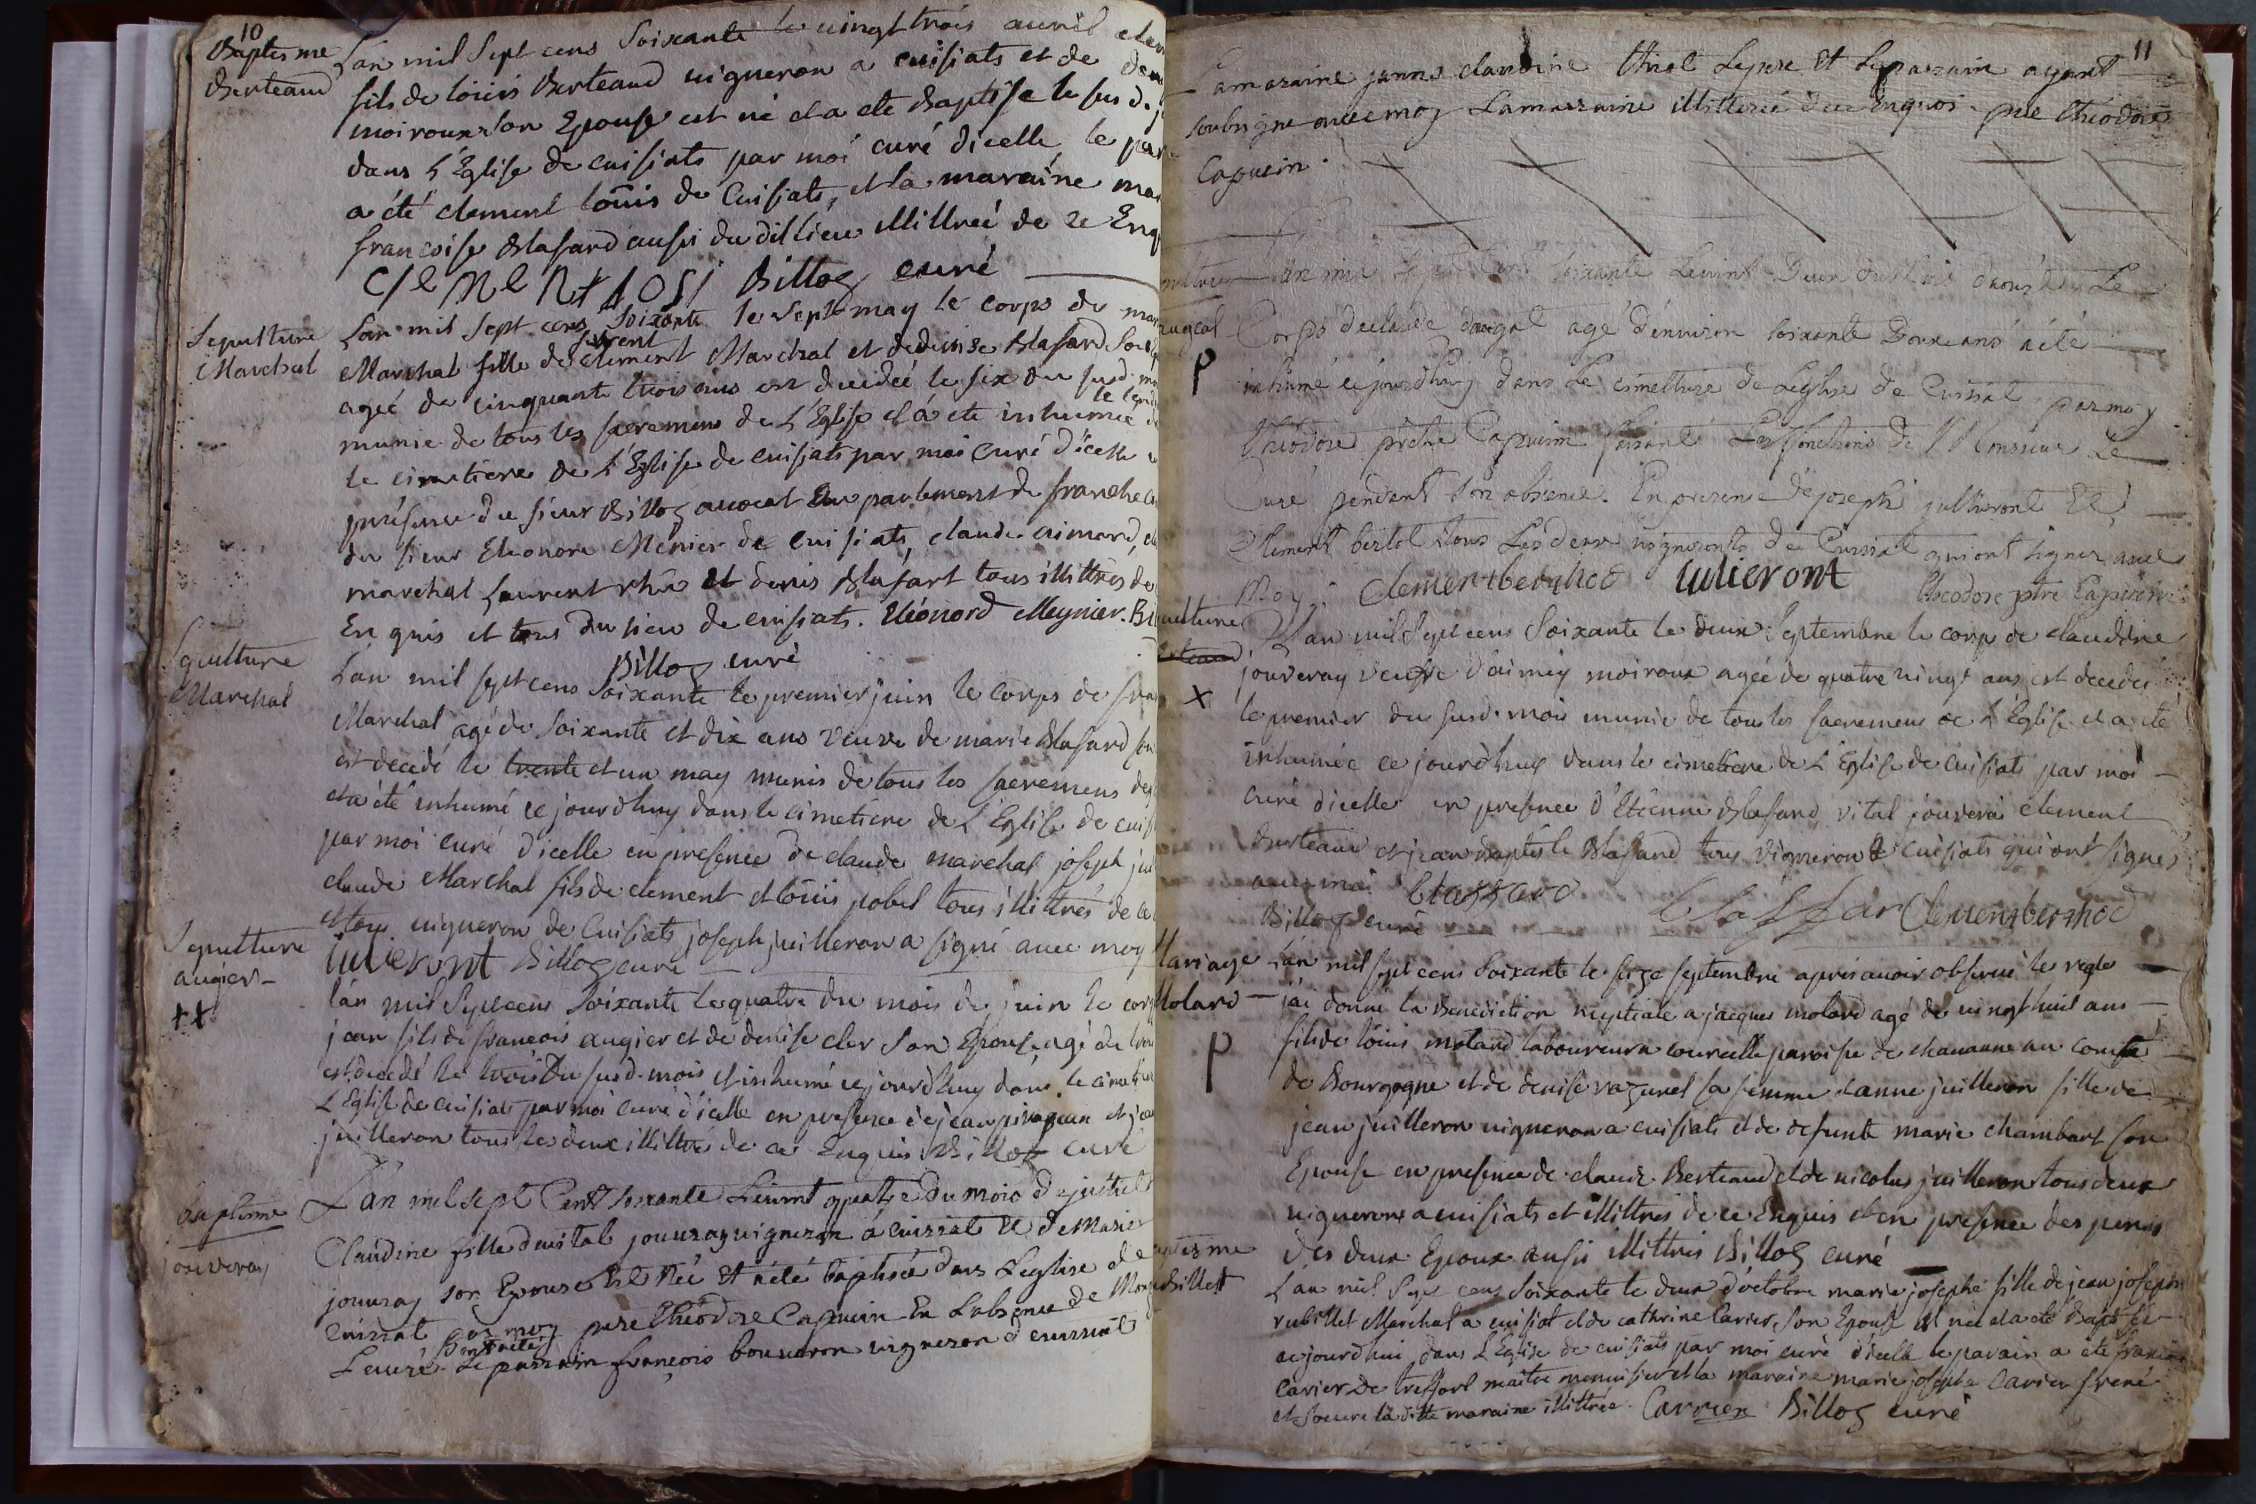 10
Baptesme
Berteaud
Lan mil Sept cens Soixante le vingt trois avril clem
fils de loüis Berteaud vigneron a cuisiats et de den
moiroux son Epouse est né et a ete Baptise le susd. j
dans L'Eglise de cuisiats par moi curé dicelle le par
a été clement loüis de Cuisiats, et la maraine mar
francoise Blasard aussi du dit lieu illittreé de ce Enq
Billoz curé
Sepulture
Marchal
Lan mil sept cens Soixante le sept may le corps de mar
Marchal fille de clement Marchal et de denise Blasard
ageé de cinquante trois ans est decideé le six du susd. m
munie de tous les sacremens de L'Eglise et a ete inhumeé
le cimetiere de L'Eglise de cuisiats par moi curé d'icelle
présence du sieur Billoz avocat au parlement de franche
du sieur Eleonore Ménier de cuisiats, claude
marchal Laurent et denis Blasart tous illittrés de
Enquis et tous du lieu de cuisiats. Eléonord Meynier. Bi
Billoz curé
Sepulture
Marchal
Lan mil sept cens Soixante le premier juin le corps de fra
Marchal agé de Soixante et dix ans veuve de marie Blasard
est decedé le trente et un may munis de tous les sacremens de
et a été inhumé ce jourdhuy dans le cimetiere de L'Eglise de cuis
par moi curé dicelle en presence de claude marchal joseph jui
claude Marchal fils de clement et loüis pobel tous illittrés de ce
et tous vigneron de Cuisiats joseph juilleron a signé avec moy
iulieront Billoz curé
Sepulture
augier
lán mil Sept cens Soixante le quatre du mois de juin le cor
jean fils de francois augier et de denise cler son Epouse agé de
est decedé le trois du susd. mois et inhumé ce jourdhuy dans le cimeti
L'Eglise de cuisiats par moi curé d'icelle en presence de jean et je
juilleron tous les deux illittré de ce Enquis Billoz curé
Baptisme
jouveray
L'an mil sept Cent soixante Le vint quatre du mois de juillet
Claudine fille de vital jouvray vigneron a cuissiat et de Marie
jouvray son Epouse Est Neé Et a été baptiseé dans L'eglise de
Cuissiat par moy pere théodore Capucin En L'absence de Mons
Le curé Le parrain françois bouveron vigneron d cuissiat
11
La maraine janne claudine Le pere Et Le parrain ayant
soubsigne avec moy La marraine illitereé de ce Enquoi pere théodore
Capucin
L'an mil Sept Cens soixante Le vint Le
Corps de claude agé d'environ soixante Douze ans a été
inhumé ce jourd'huy dans Le cimettiere de L'eglise de Cuissiat par moy
théodore prêtre Capucin faisant Les fonctions de Monsieur Le
Curé pendent son absence. En presence de joseph jullieront Et
Clement bertot tous Les deux vignerons de Cuissiat qui ont signez avec
Moy. Clementberthod iulieront théodore ptre Capucin
ulture
L'an mil Sept cens Soixante le deux Septembre le corp de claudine
jouveray veufve d'aimey moiroux ageé de quatre vingt ans est decedeé
le premier du susd. mois munie de tous les sacremens de L'Eglise et a été
inhumée ce jourdhuy dans le cimetiere de L'Eglise de Cuisiats par moi
curé dicelle en presence d'Etienne Blasard vital jouverai clement
Berteaud et jean baptiste Blasard tous vigneron de cuisiats qui ont signés
avec moi Blassard
Billoz curé Clemensberthod
Mariage
Molard
Lán mil sept cens Soixante le seze septembre apres avoir observé les regles
j'ai donné la Benediction nuptiale a jacques molard agé de vingt huit ans
fils de loüis molard laboureur a courcelle paroisse de chavanne au comté
de Bourgogne et de denise sa femme et anne juilleron fille de
jean juilleron vigneron a cuisiats et de defunte marie chambart son
Epouse en presence de claude Berteaud et de nicolas juilleron tous deux
vignerons a cuisiats et illittrés de ce Enquis et en presence des peres
des deux Epoux aussi illittrés Billoz curé
Lán mil Sept cens Soixante le deux d'octobre marie josephe fille de jean joseph
rubillet Marchal a cuisiat et de cathrine Carier, son Epouse est née et a eté Baptisé
ce jourdhui dans L'Eglise de cuisiats par moi curé d'icelle le parain a ete francois
Carier de treffort maitre menuisier et la maraine marie josephe Carier frere
et soeure la ditte maraine illittrée. Carrier Billoz curé